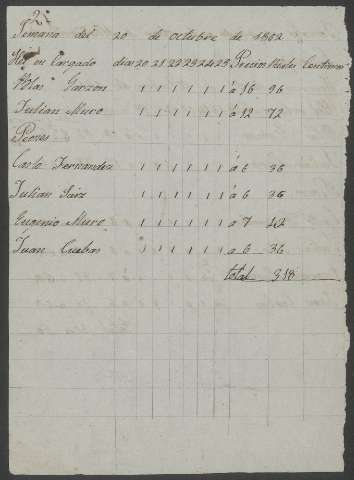 2ª
Semana del 20 de Octubre de 1862
en cargado dias 20 21 22 23 24 25 Precios Reales Centimos
Blas Garzon 1 1 1 1 1 1 á 16 96
Julian Muro 1 1 1 1 1 1 á 12 72
Peones
Casto Fernandez 1 1 1 1 1 1 á 6 36
Julian Saiz 1 1 1 1 1 1 á 6 36
Eugenio Muro 1 1 1 1 1 1 á 7 42
Juan Cubas 1 1 1 1 1 1 á 6 36
total 318